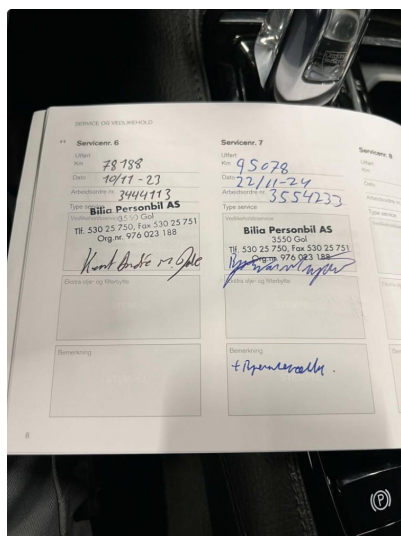 SERVICE OG VEDLIKEHOLD
Servicenr. 6
Utført
Km 78188
Dato 10/11-23
Arbeidsordre nr. 3444113
Type service
Vedlikeholdsservice
Bilia Personbil AS
3550 Gol
Tlf. 530 25 750, Fax 530 25 751
Org.nr. 976 023 188
Ekstra olje- og filterbytte
Bemerkning
8
Servicenr. 7
Utført
Km 95078
Dato 22/11-24
Arbeidsordre nr. 3554233
Type service
Vedlikeholdsservice
Bilia Personbil AS
3550 Gol
Tlf. 530 25 750, Fax 530 25 751
Org.nr. 976 023 188
Ekstra olje- og filterbytte
Bemerkning
Servicenr. 8
Utført
Km
Dato
Arbeidsordre
Type service
(P)